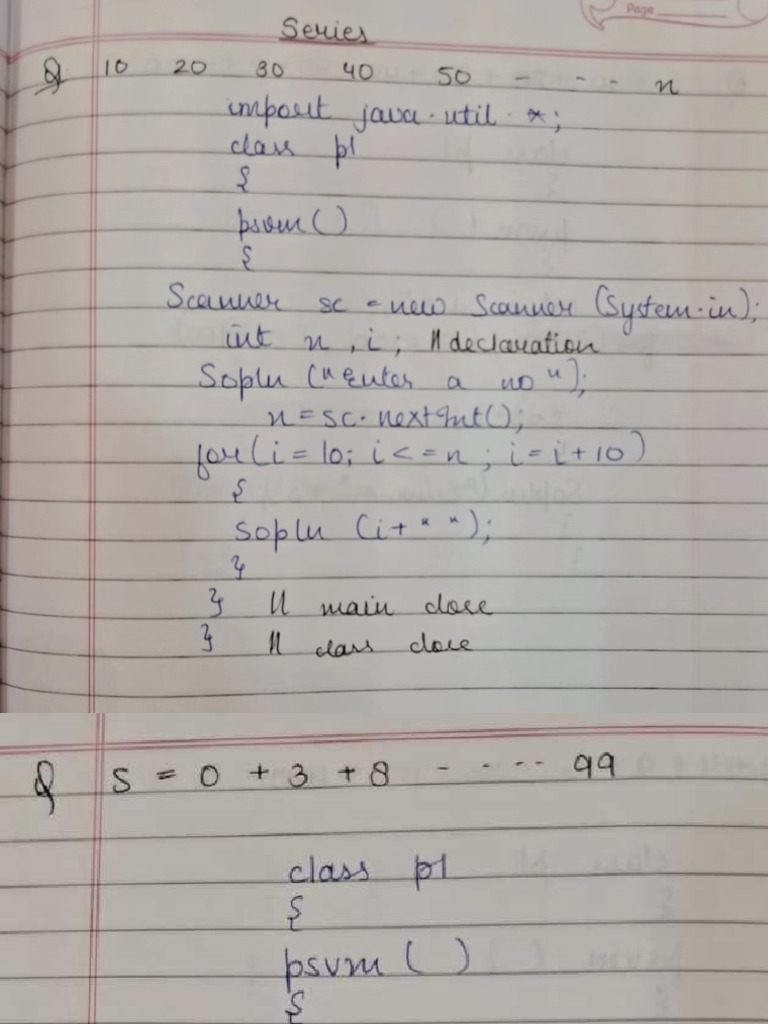 Page
Series
Q 10 20 30 40 50 - - - - n
import java.util.*;
class p1
{
psvm()
{
Scanner sc = new Scanner (System.in);
int n, i; // declaration
Sopln ("Enter a no");
n = sc.nextInt();
for(i = 10; i <= n; i = i + 10)
{
sopln (i + " ");
}
} // main close
} // class close
Q S = 0 + 3 + 8 - - - - 99
class p1
{
psvm ( )
{